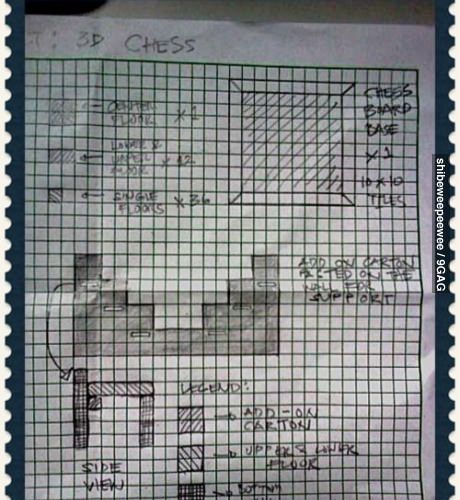 T: 3D CHESS
CENTER
FLOOR x 1
LOWER &
UPPER
FLOOR x 12
SINGLE
FLOORS x 36
CHESS
BOARD
BASE
x 1
10 x 10
TILES
ADD ON CARTON
PASTED ON THE
WALL FOR
SUPPORT
LEGEND:
ADD-ON
CARTON
UPPER & LOWER
FLOOR
BOTTOM
SIDE
VIEW
shibeweepeewee / 9GAG